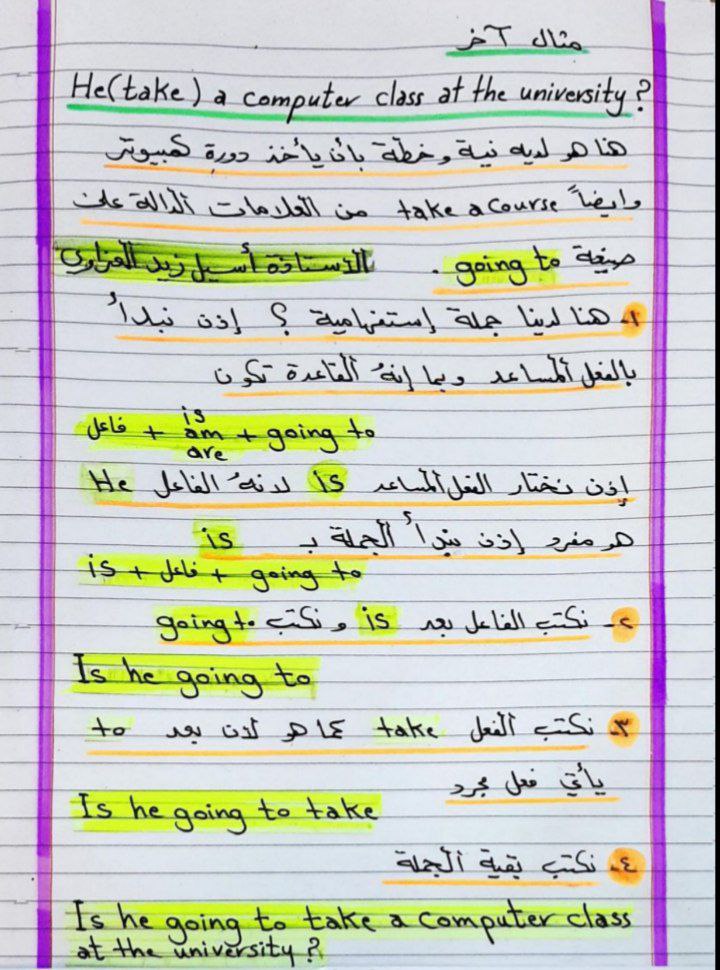 مثال آخر
He(take) a computer class at the university?
هنا هو لديه نية وخطة بأن يأخذ دورة كمبيوتر
وايضاً take a course من العلامات الدالة على
صيغة going to .
الأستاذة أسيل زيد العزاوي
١- هنا لدينا جملة إستفهامية ؟ إذن نبدأ
بالفعل المساعد وبما إنهُ القاعدة تكون
فاعل + is am are + going to
إذن نختار الفعل المساعد is لانهُ الفاعل He
هو مفرد إذن نبدأ الجملة بـ is
is + فاعل + going to
٢- نكتب الفاعل بعد is و نكتب going to
Is he going to
٣- نكتب الفعل take كما هو لأن بعد to
يأتي فعل مجرد
Is he going to take
٤- نكتب بقية الجملة
Is he going to take a computer class
at the university?